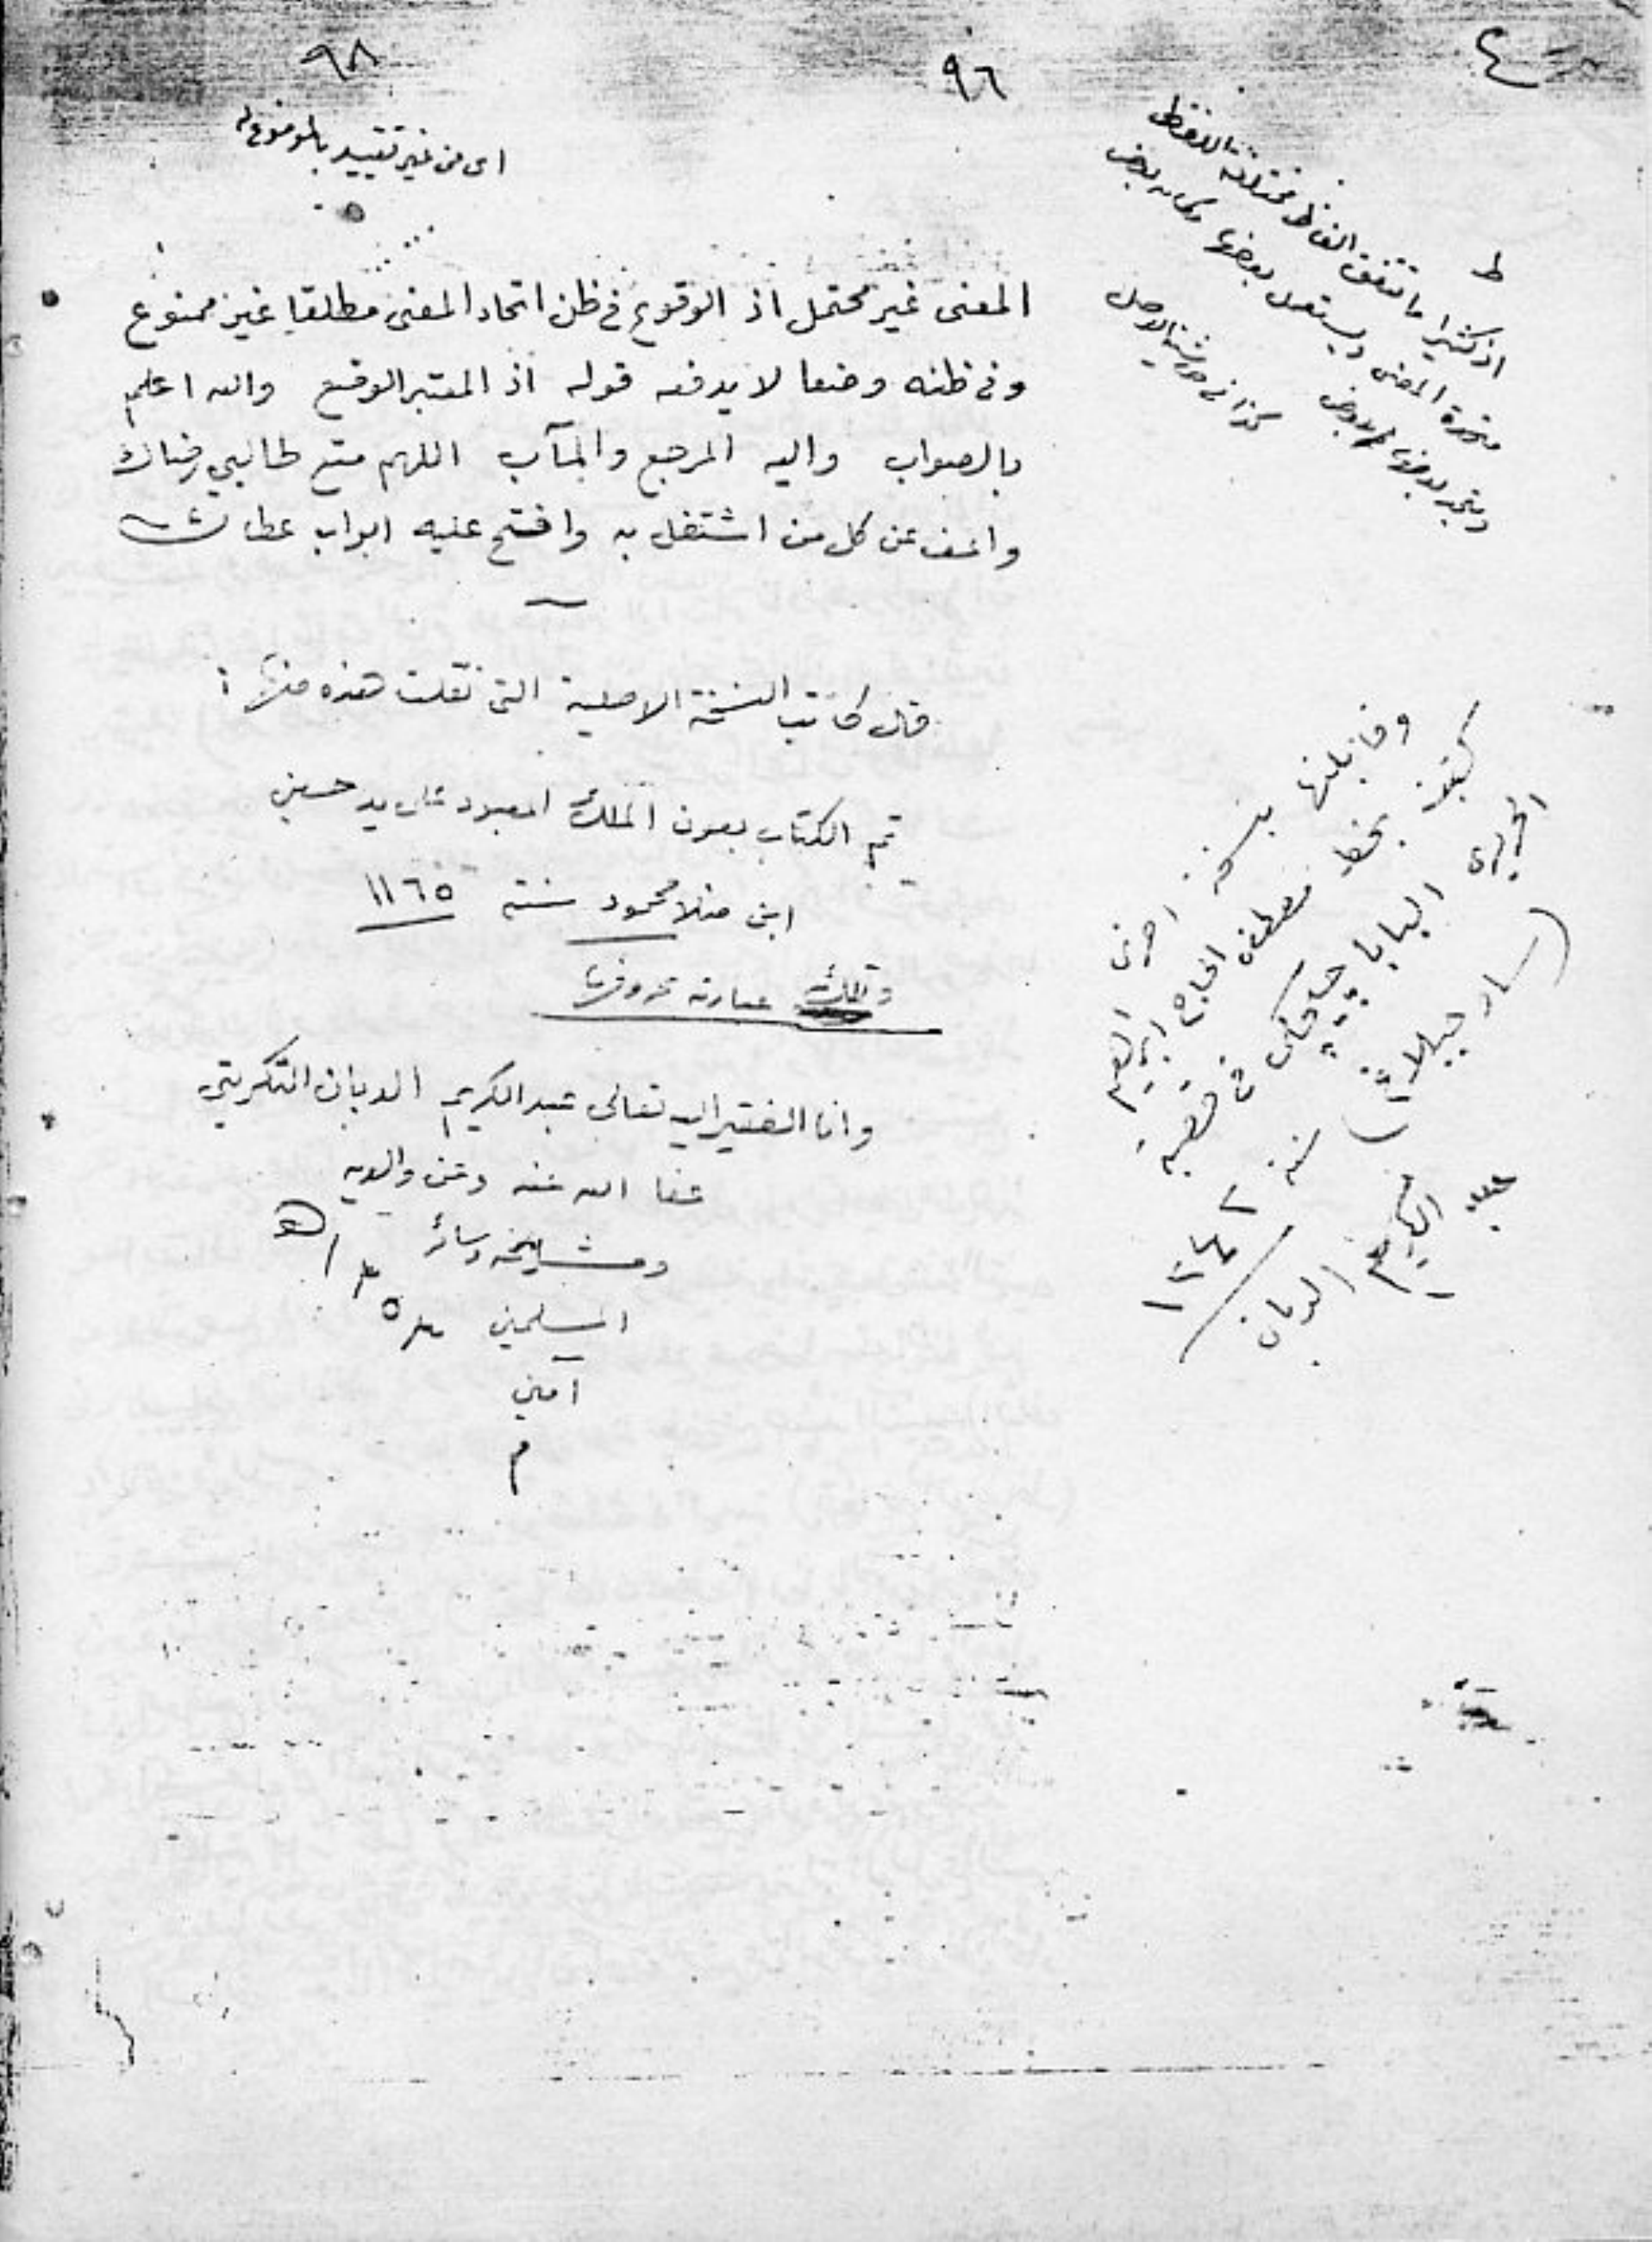 ٩٨
٩٦
اى من غير تقييد بالموضوع له
المعنى غير محتمل اذ الوقوع فى ظن اتحاد المعنى مطلقا غير ممنوع
وفى ظنه وضعا لا يدفعه قوله اذ المعتبر الوقع والله اعلم
بالصواب واليه المرجع والمآب اللهم متع طالبي رضاك
واعف عن كل من اشتغل به وافتح عليه ابواب عطائك
قال كاتب النسخة الاصلية التى نقلت هذه منها :
تم الكتاب بعون الملك المعبود على يد حسين
ابن منلا محمود سنة ١١٦٥
وتلك عبارته بحروفها
وانا الفقير اليه تعالى عبد الكريم الدبان التكريتي
عفا الله عنه وعن والديه
ومشايخه وسائر
المسلمين
آمين
م
ط
اذ كثيرا ما تتفق الفاظ مختلفة اللفظ
متحدة المعنى ويستعمل بعضها مكان بعض
كذا فى حواشي الاصل
وقابلتها بنسخة اخرى
كتبت بخط مصطفى الحاج ابراهيم
الجبرى البابا فى قصبة
سنة ١٢٤٢
عبد الكريم الدبان